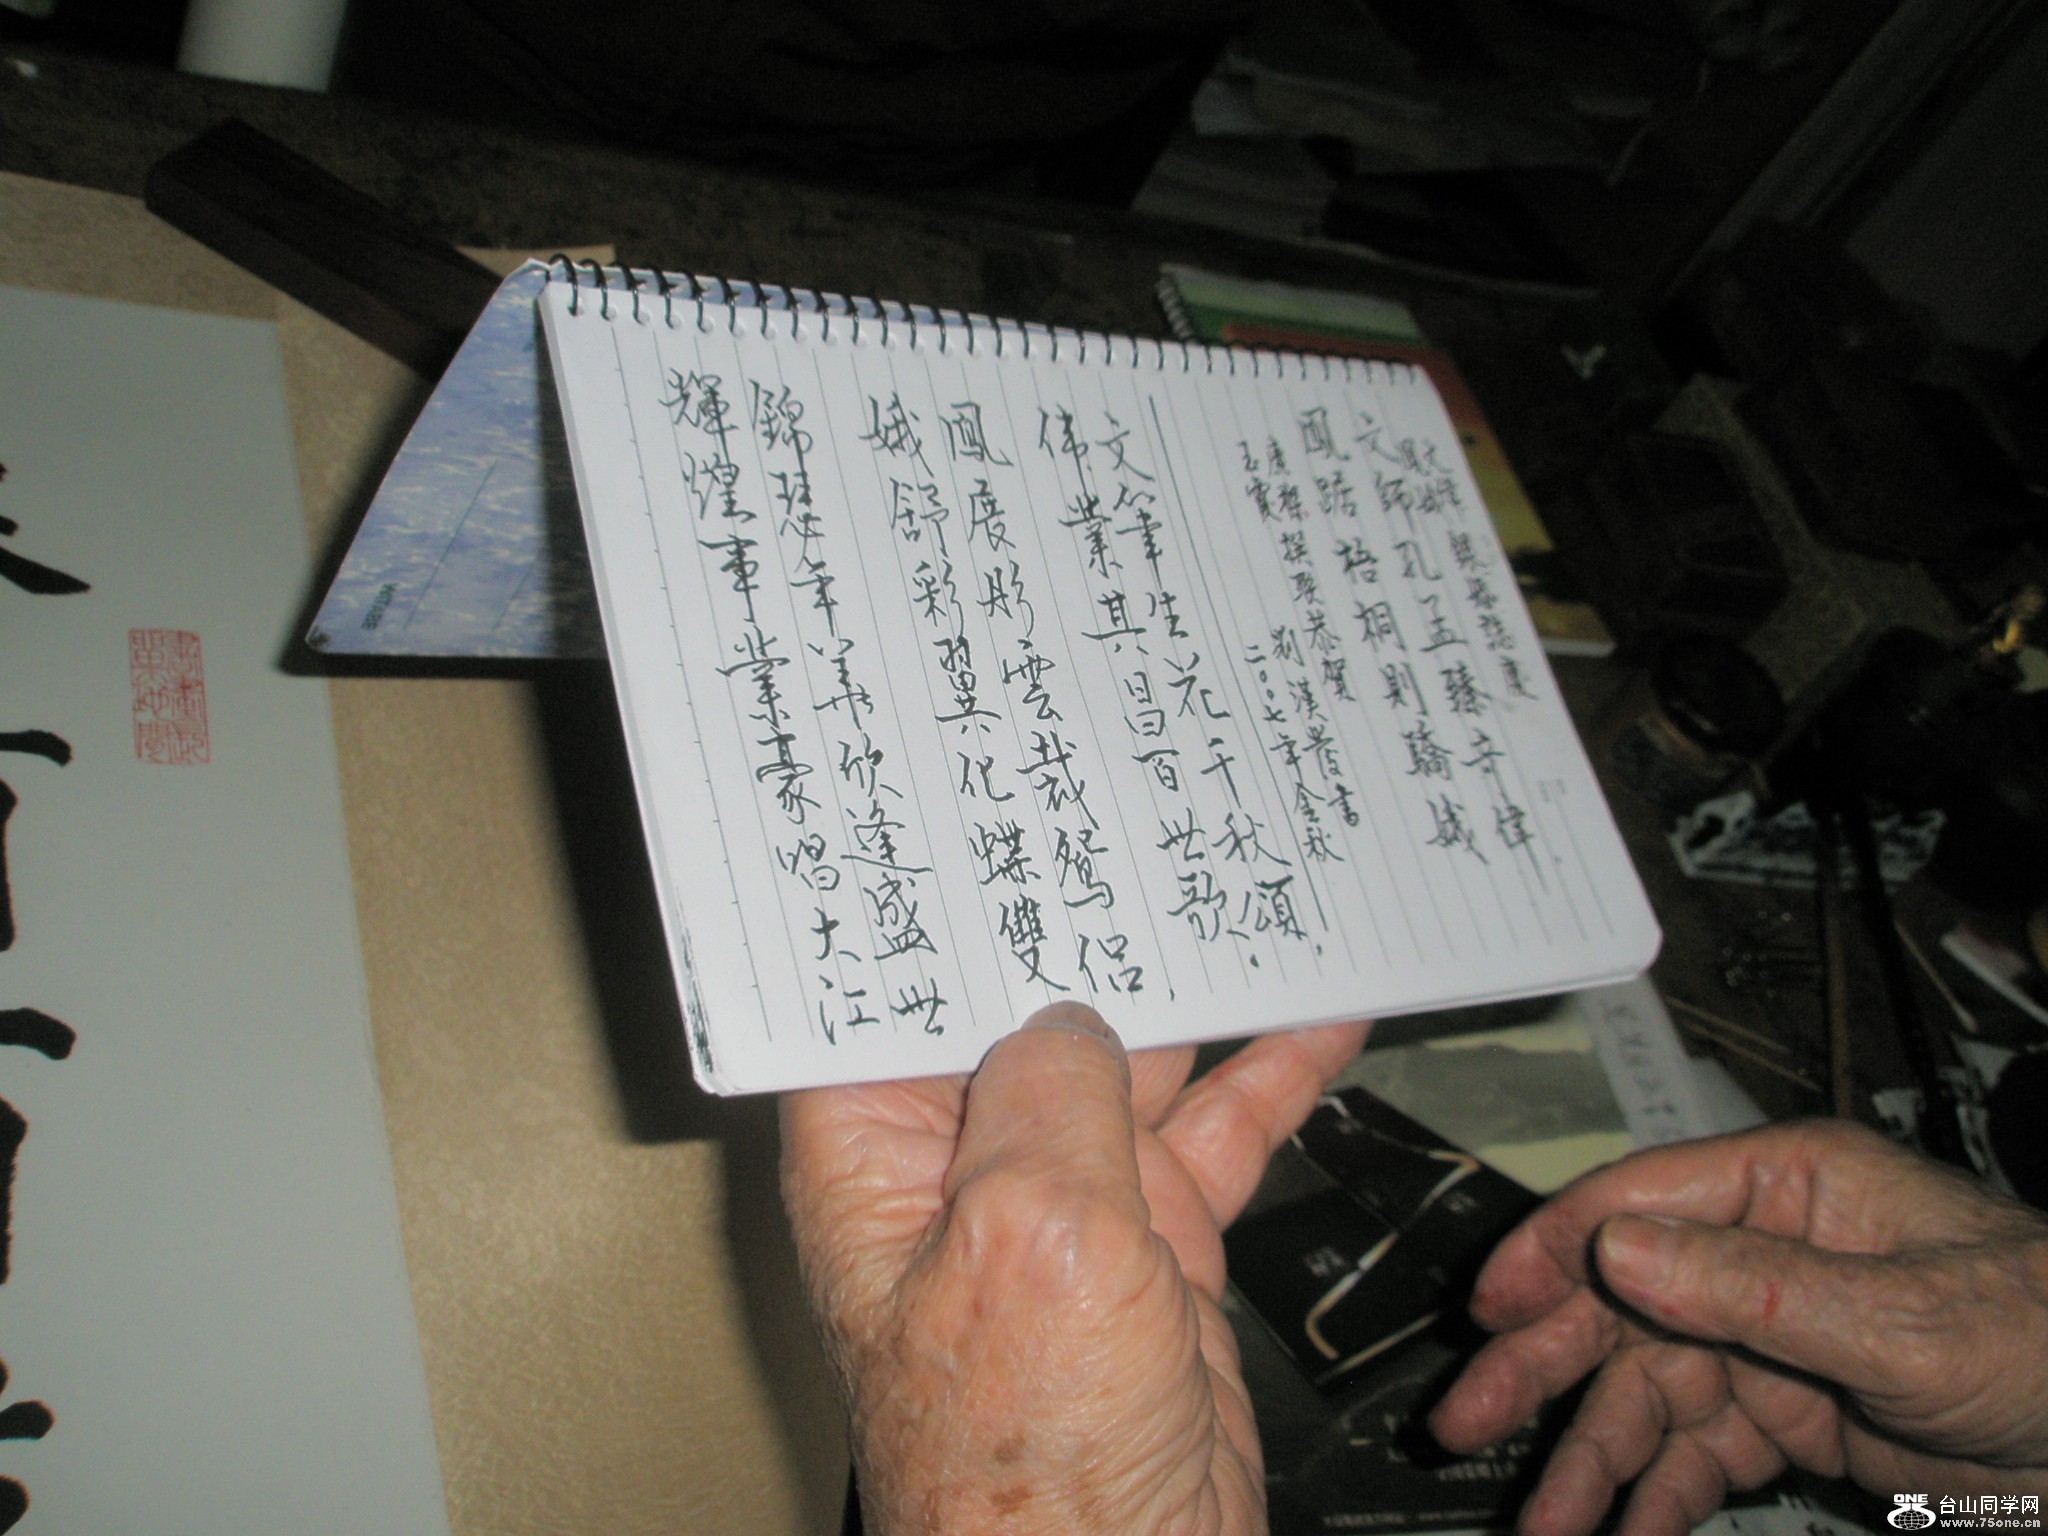 文偉 銀婚誌慶
鳳娥
文師孔孟臻奇偉
鳳踞梧桐則驕娥
廣馨撰聯恭賀
玉寶
劉漢芳書
二〇〇七年金秋
文筆生花千秋頌，
偉業其昌百世歌。
鳳展彤雲裁鴛侶，
娥舒彩翼化蝶雙
錦瑟年華欣逢盛世
輝煌事業豪唱大江
ONE
台山同学网
www.75one.cn